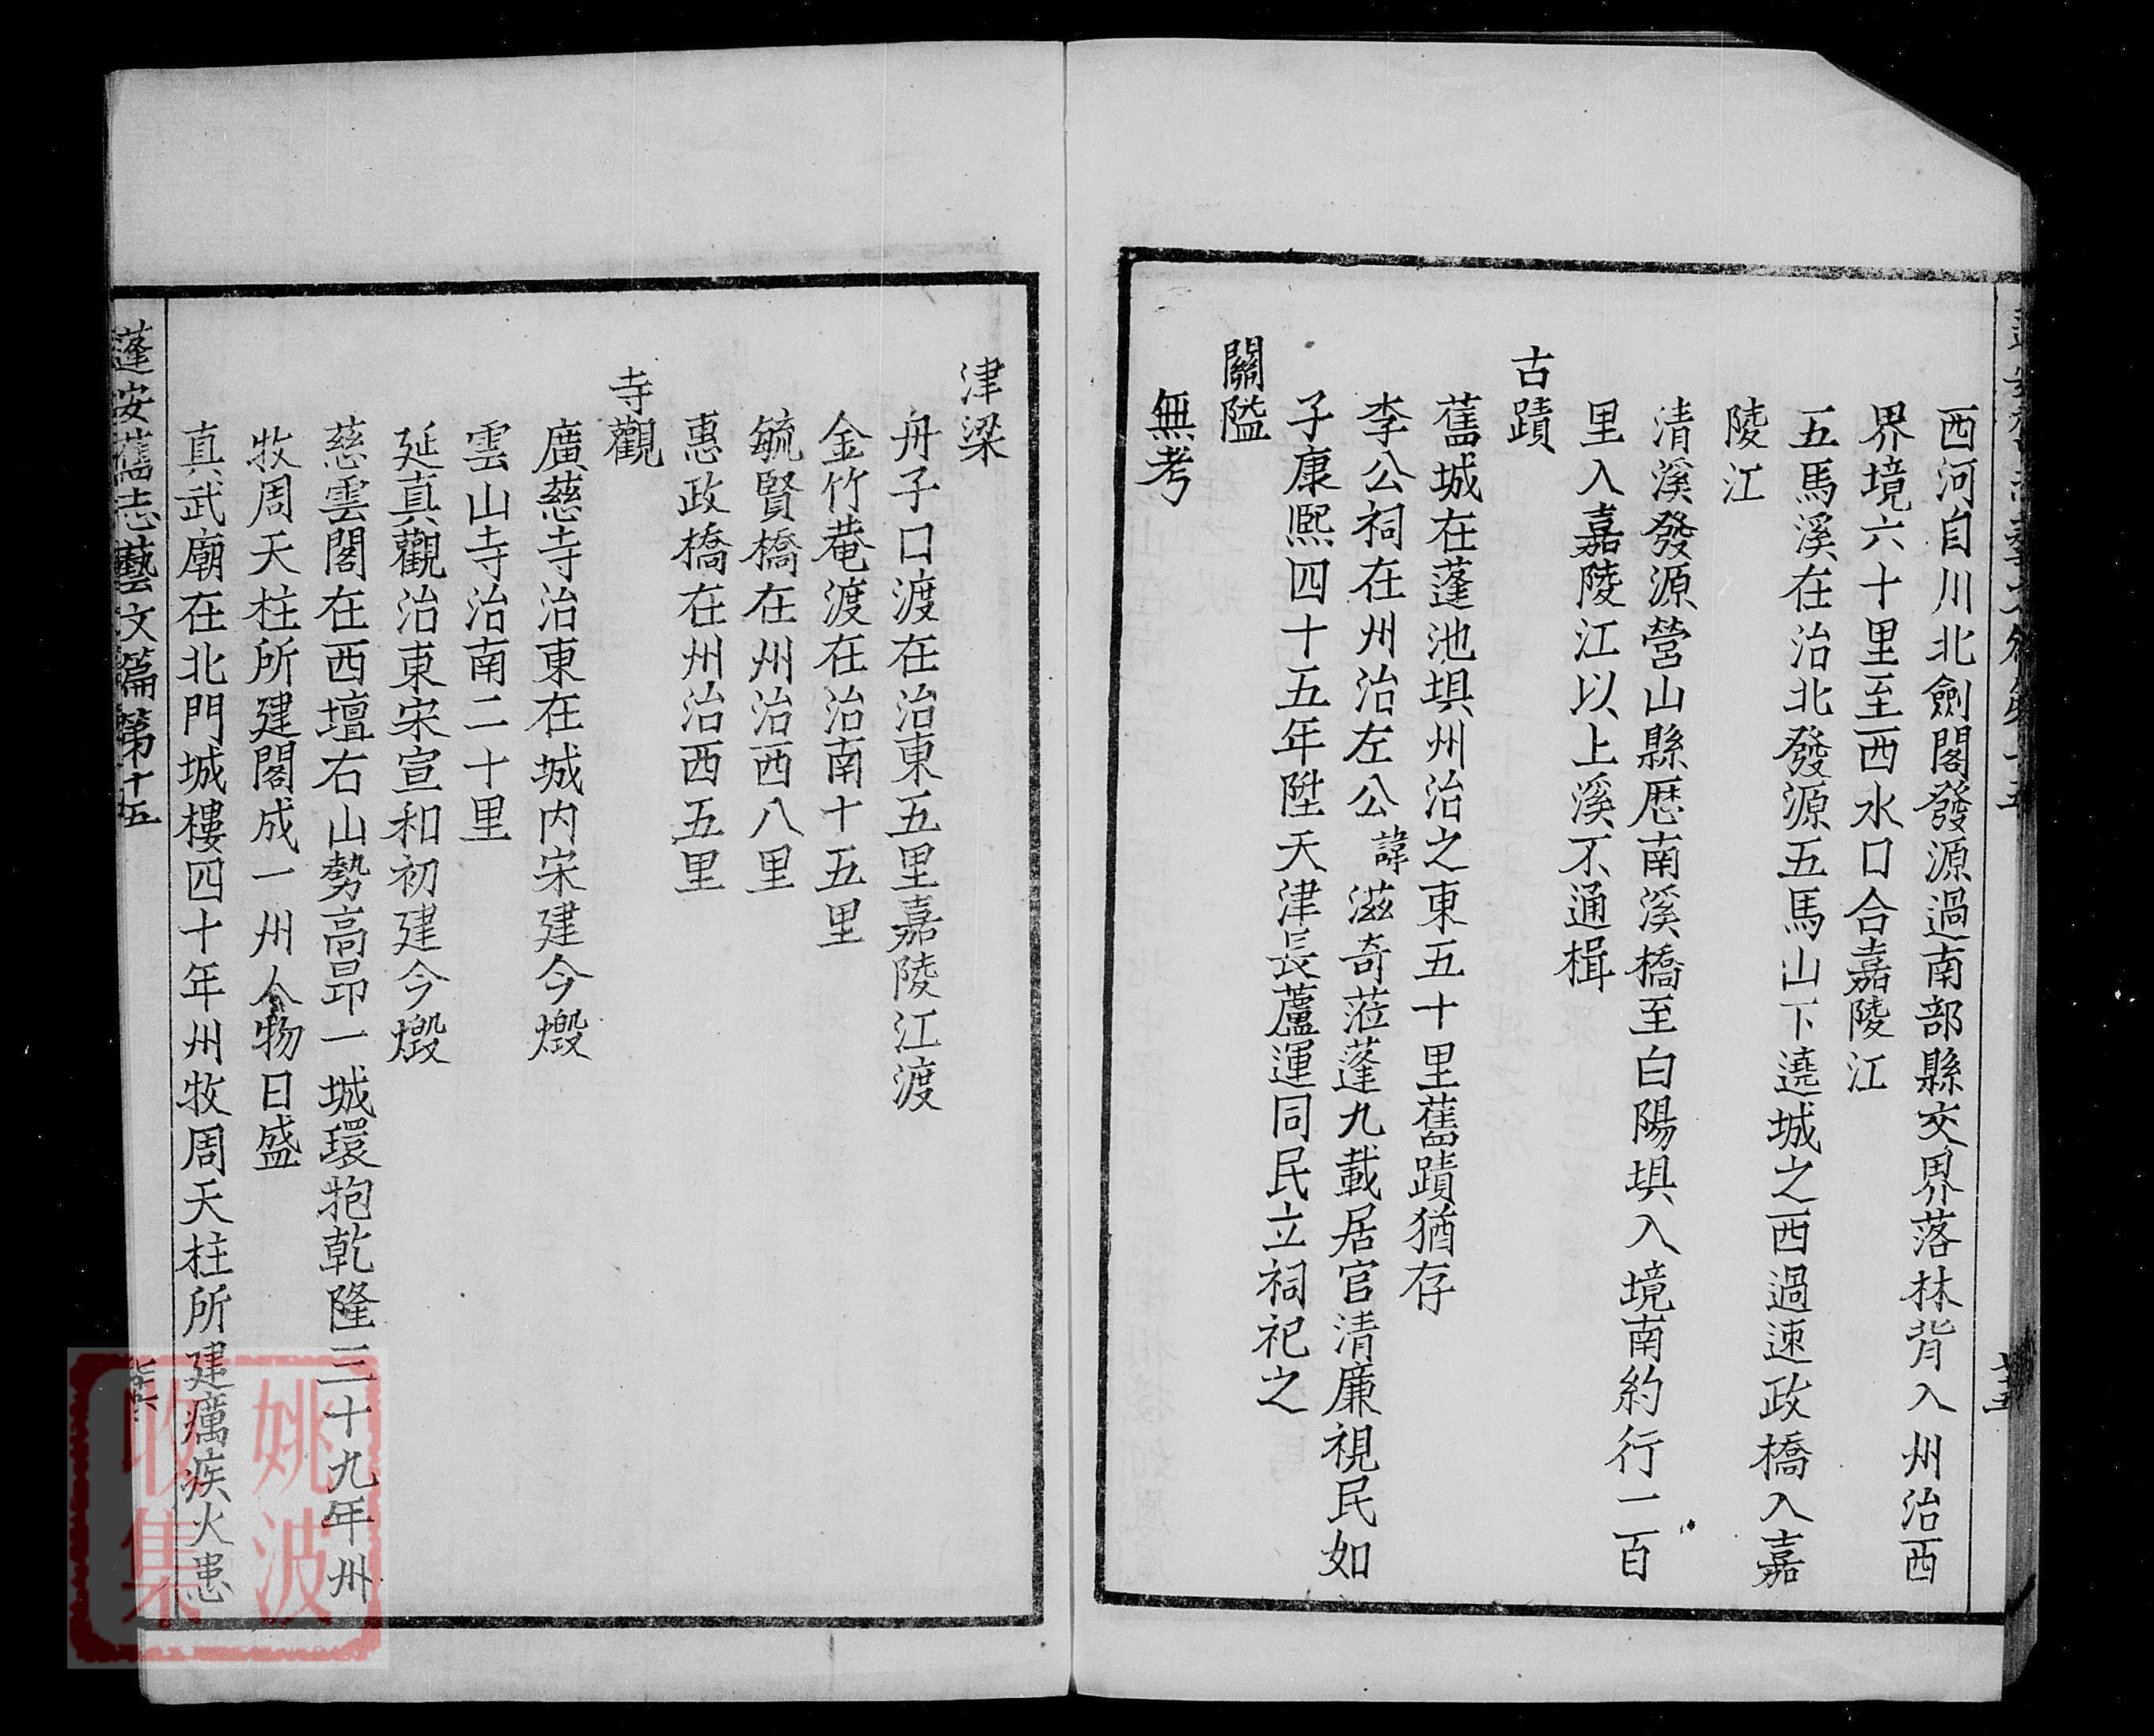 西河自川北劍閣發源過南部縣交界落林背入州治西
界境六十里至西水口合嘉陵江
五馬溪在治北發源五馬山下遶城之西過速政橋入嘉
陵江
清溪發源營山縣歷南溪橋至白陽埧入境南約行一百
里入嘉陵江以上溪不通楫
古蹟
舊城在蓬池埧州治之東五十里舊蹟猶存
李公祠在州治左公諱滋奇蒞蓬九載居官清廉視民如
子康熙四十五年陞天津長蘆運同民立祠祀之
關隘
無考
津梁
舟子口渡在治東五里嘉陵江渡
金竹菴渡在治南十五里
毓賢橋在州治西八里
惠政橋在州治西五里
寺觀
廣慈寺治東在城内宋建今燬
雲山寺治南二十里
延真觀治東宋宣和初建今燬
慈雲閣在西壇右山勢高昂一城環抱乾隆三十九年州
牧周天柱所建閣成一州人物日盛
真武廟在北門城樓四十年州牧周天柱所建癘疾火患
蓬安舊志藝文篇第十五
姚波
收集